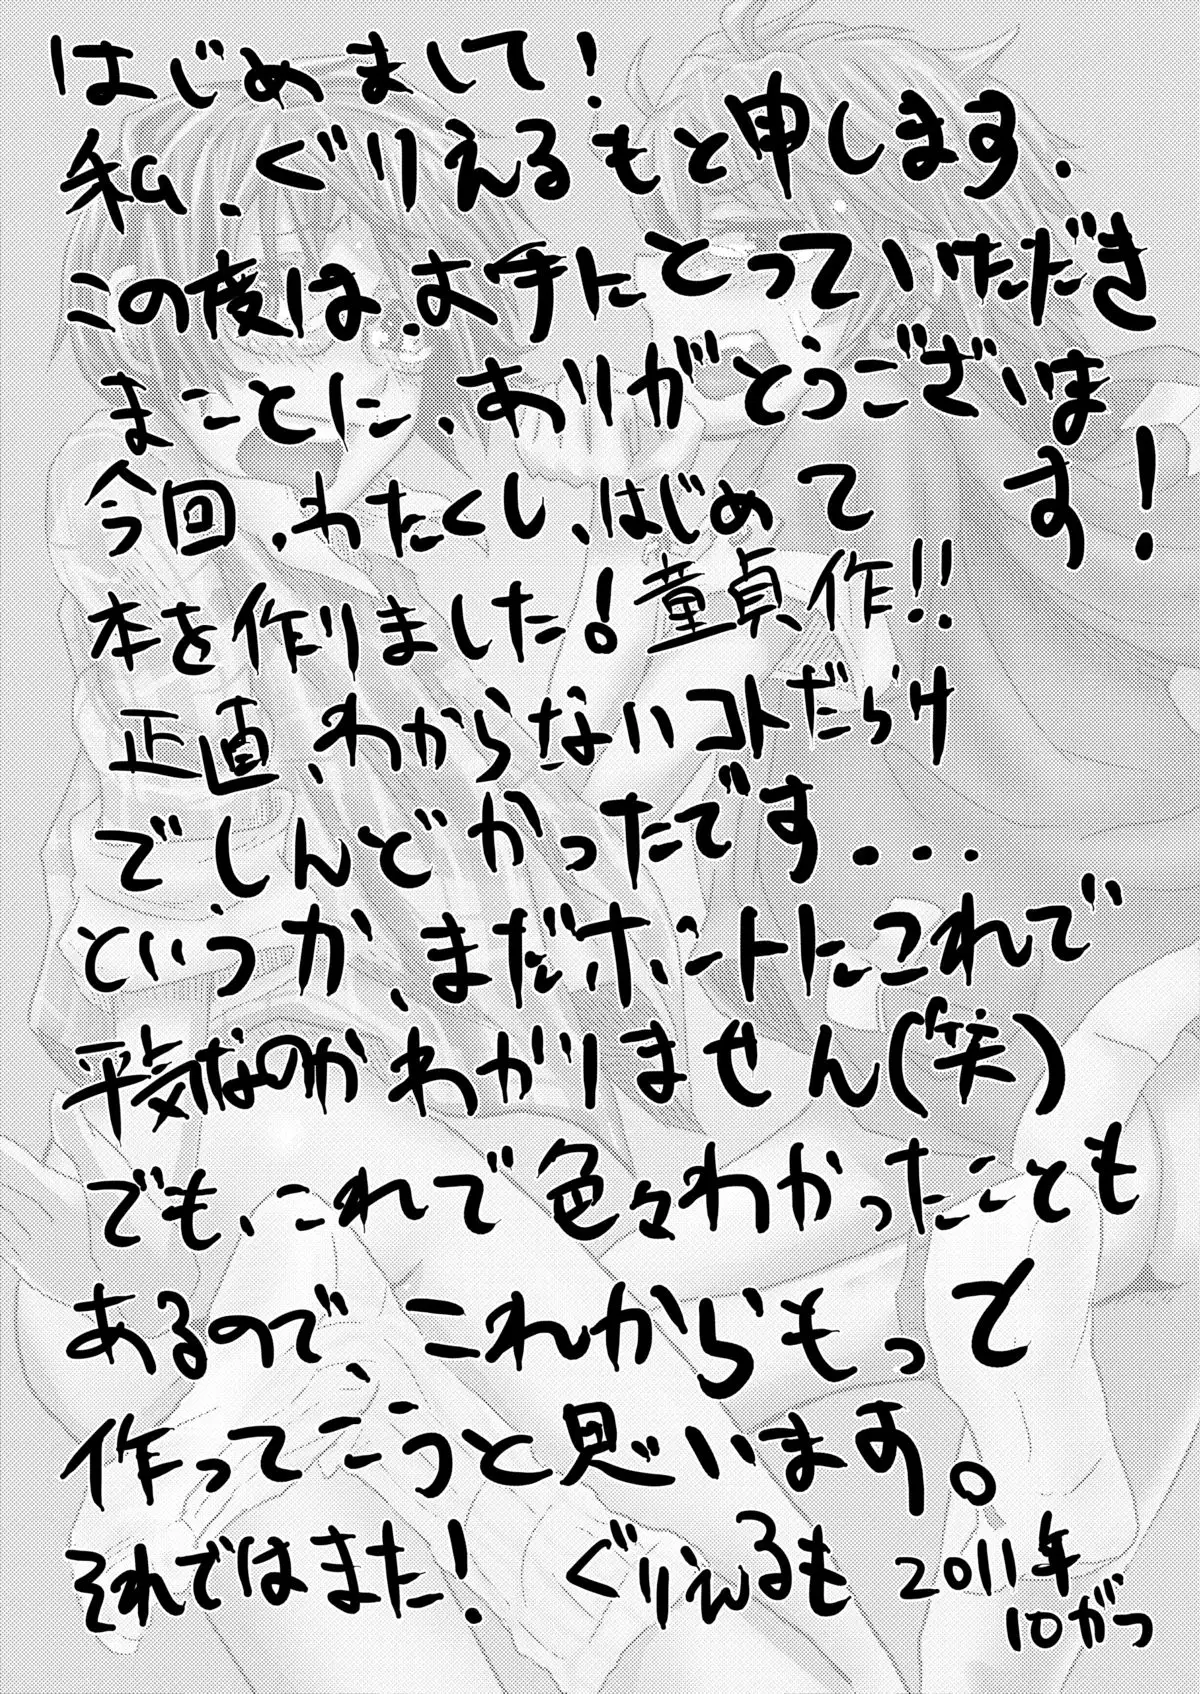 はじめまして！
私、ぐりえるもと申します．
この度は、お手にとっていただき
まことに、ありがとうございます！
今回、わたくし、はじめて
本を作りました！童貞作！！
正直、わからないコトだらけ
でしんどかったです．．．
というか、まだホントにこれで
平気なのかわかりません（笑）
でも、これで色々わかったことも
あるので、これからもっと
作ってこうと思います。
それではまた！ ぐりえるも 2011年
10がつ